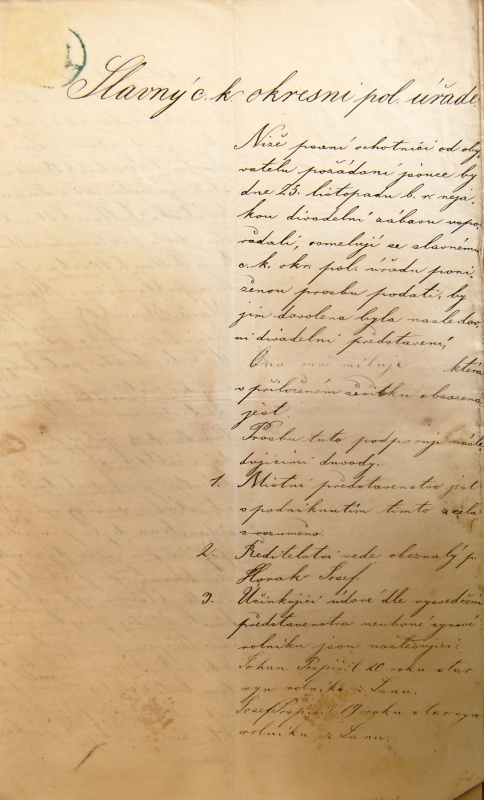 Slavný c. k. okresni pol. úřade
Niže psaní ochotníci od oby
vatelu požádaní jsouce by
dne 25. listopadu b. r. neja
kou divadelní zábavu uspo
řádali, osmelují se slavnému
c. k. okr. pol. úřadu poni
ženou prosbu podati, by
jim dovolena byla nasledov
ni divadelní představení,
Ona mne miluje která
v přiloženém sešitku obsažena
jest.
Prosbu tuto podporují násle
dujícími duvody.
1. Mistni predstavenstvo jest
s podniknutím timto zcela
srozuměno.
2. Reditelství vede obeznalý p.
Horak Josef.
3. Učinkující údové dle vysvedčení
predstavenstva neuhoné synové
rolniku jsou nasledující:
Johan Pospíšil 20 roku star
syn rolnika z Lanu.
Josef Pospíšil 19 roku star syn
rolnika z Lanu.